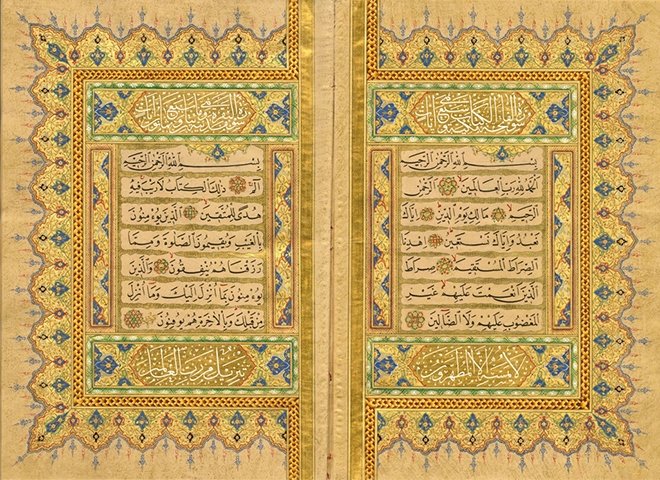 بسم الله الرحمن الرحيم
الحمد لله رب العالمين الرحمن
الرحيم مالك يوم الدين اياك
نعبد واياك نستعين اهدنا
الصراط المستقيم صراط
الذين انعمت عليهم غير
المغضوب عليهم ولا الضالين
لا يمسه الا المطهرون
بسم الله الرحمن الرحيم
الم ذلك الكتاب لا ريب فيه
هدى للمتقين الذين يؤمنون
بالغيب ويقيمون الصلوة ومما
رزقناهم ينفقون والذين
يؤمنون بما انزل اليك وما انزل
من قبلك وبالاخرة هم يوقنون
تنزيل من رب العالمين